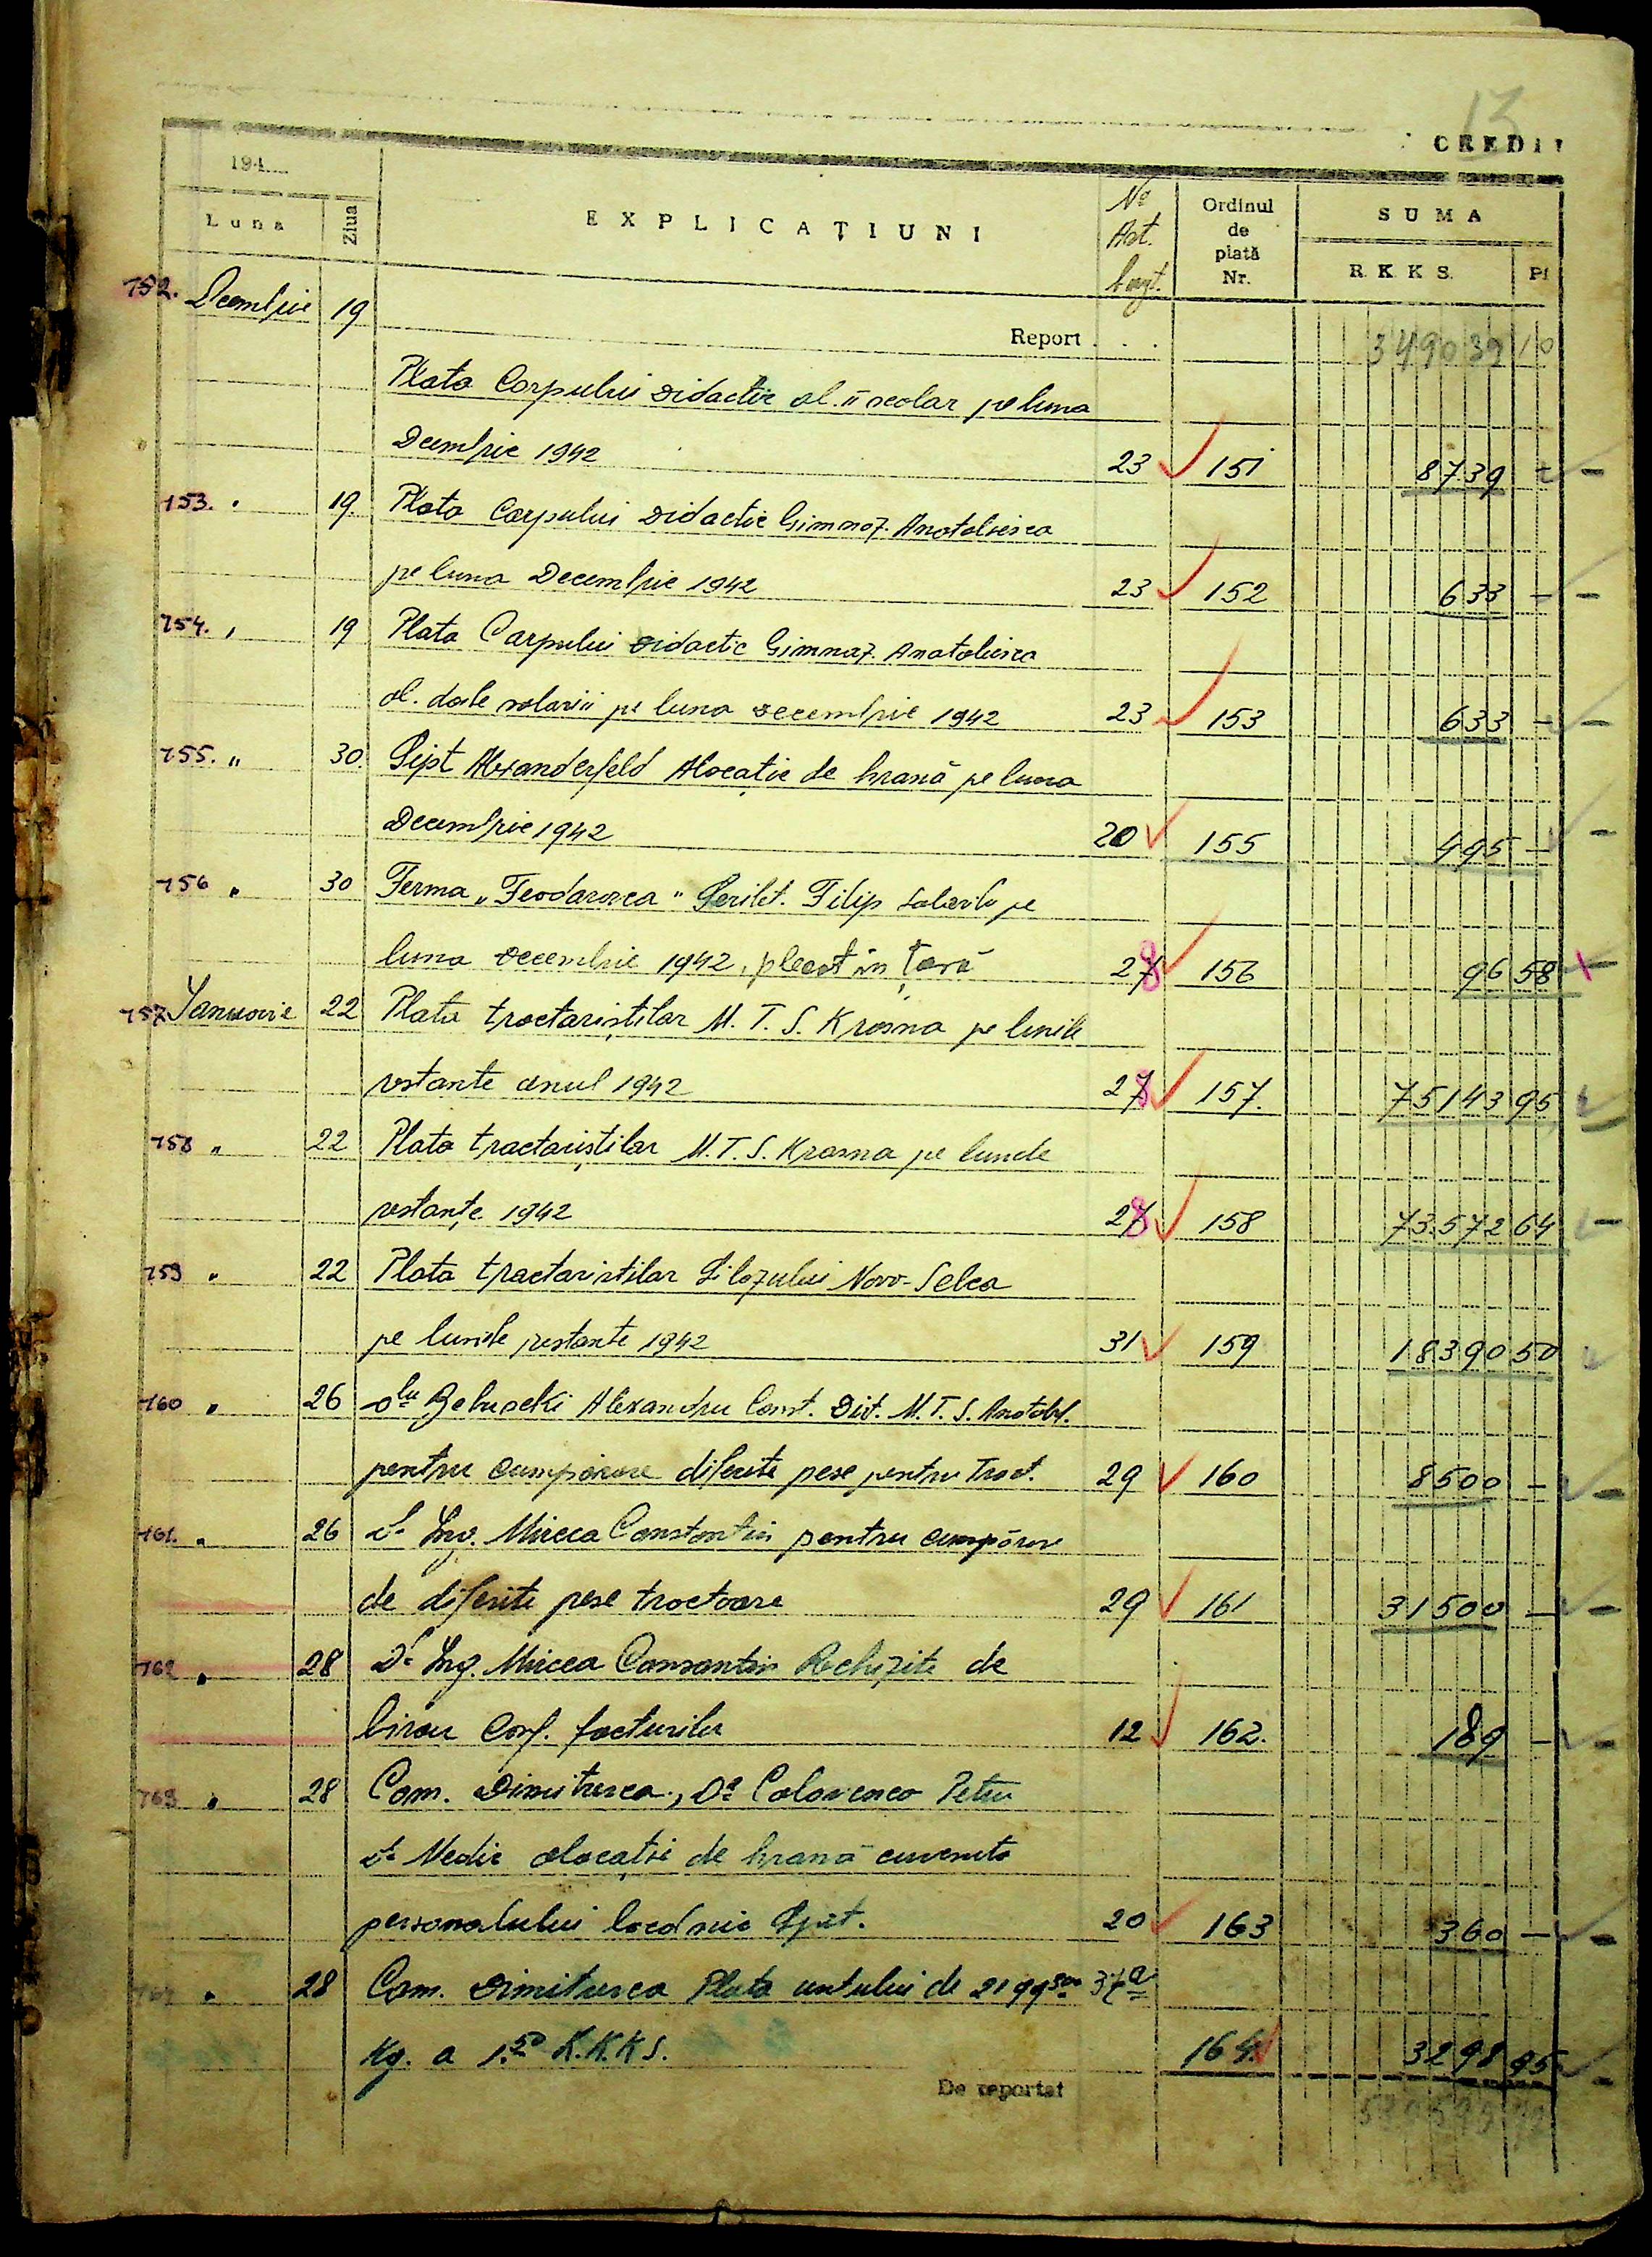 13
CREDIT
194
Luna Ziua EXPLICAȚIUNI No Art. bugt. Ordinul de plată Nr. SUMA
R.K.K.S. Pf
152. Decembrie 19 Report . . . 349039 10
Plata Corpului Didactic al. II scolar pe luna
Decembrie 1942 23 151 8739 –
153. " 19. Plata Corpului Didactic Gimnaz. Anatolievca
pe luna Decembrie 1942 23 152 633 –
154. " 19 Plata Corpului Didactic Gimnaz. Anatolievca
pe luna Decembrie 1942 23 153 633 –
155. " 30. Alexanderfeld Alocație de hrană pe luna
Decembrie 1942 20 155 495 –
156 " 30 Ferma „Feodarovca" Filip pe
luna Decembrie 1942, plecat în țară 28 156 96 58
157 Januarie 22 Plata tractariștilor M.T.S. Krasna pe lunile
restante anul 1942 28 157. 75143 95
158 " 22 Plata tractariștilor M.T.S. Krasna pe lunile
restanțe 1942 28 158 73.572 64
159 " 22 Plata tractaristilor Silozului Novo-Selca
pe lunile restante 1942 31 159 18390 50
160 " 26 Alexandru Const. Div. M.T.S. Anatol.
pentru cumpărare diferite pese pentru Tract. 29 160 8500 –
161. " 26 Dl Ing. Mircea Constantin pentru cumpărare
de diferite pese tractoare 29 161 31500 –
162 " 28 Dl Ing. Mircea Consantin Rechizite de
birou Conf. facturilor 12 162. 189 –
163 " 28 Com. Dimitrevca, Petru
Medic alocații de hrană cuvenite
personalului localnic Spit. 20 163 360 –
" 28 Com. Dimitrevca Plata untului de 2199,30 37 a
Kg. a 1.50 R.K.K.S. 164 3298 95
De reportat